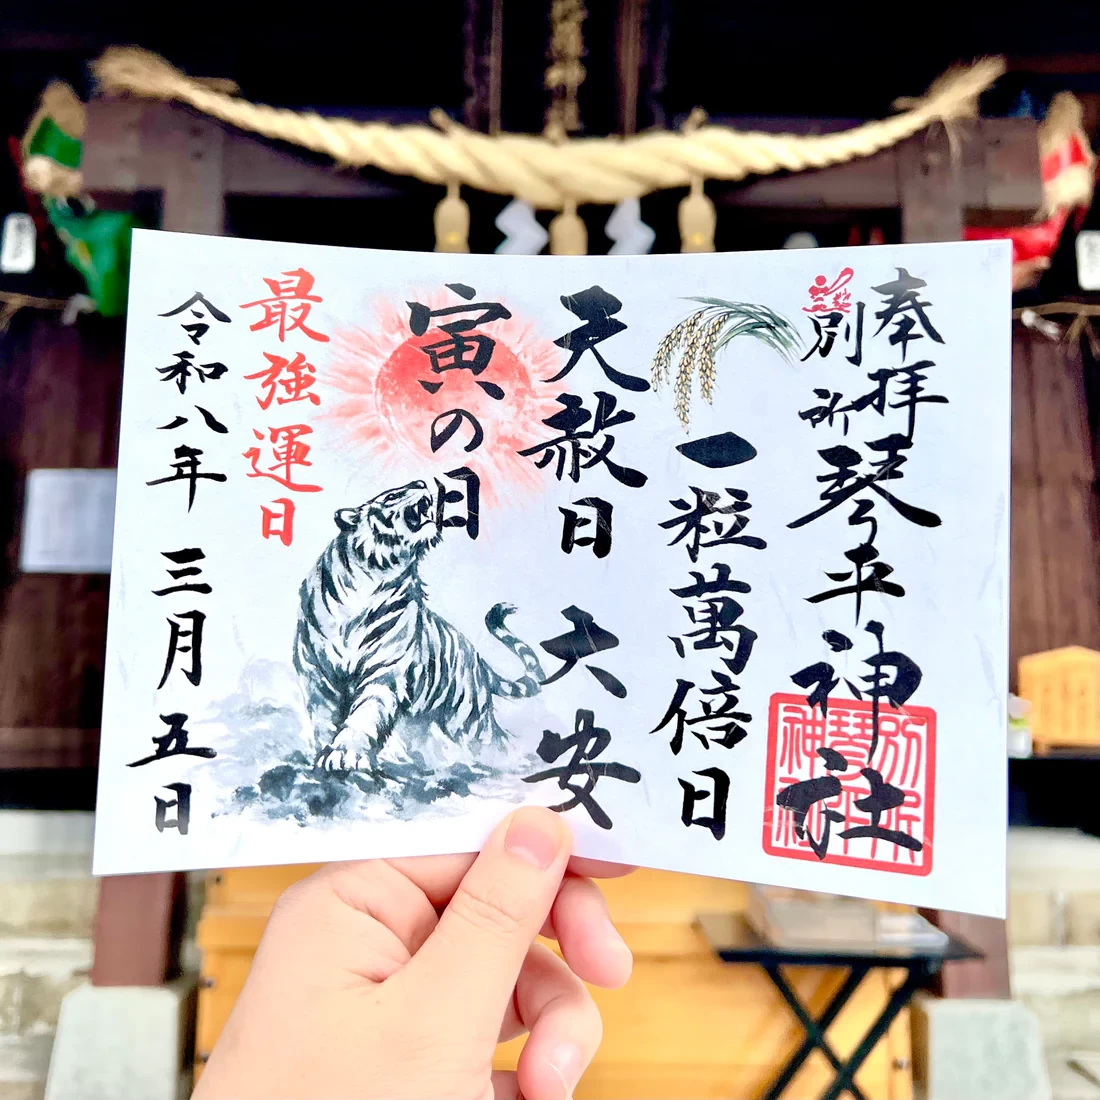 奉拝
別所琴平神社
別所琴平神社
一粒萬倍日
天赦日 大安
寅の日
最強運日
令和八年 三月 五日